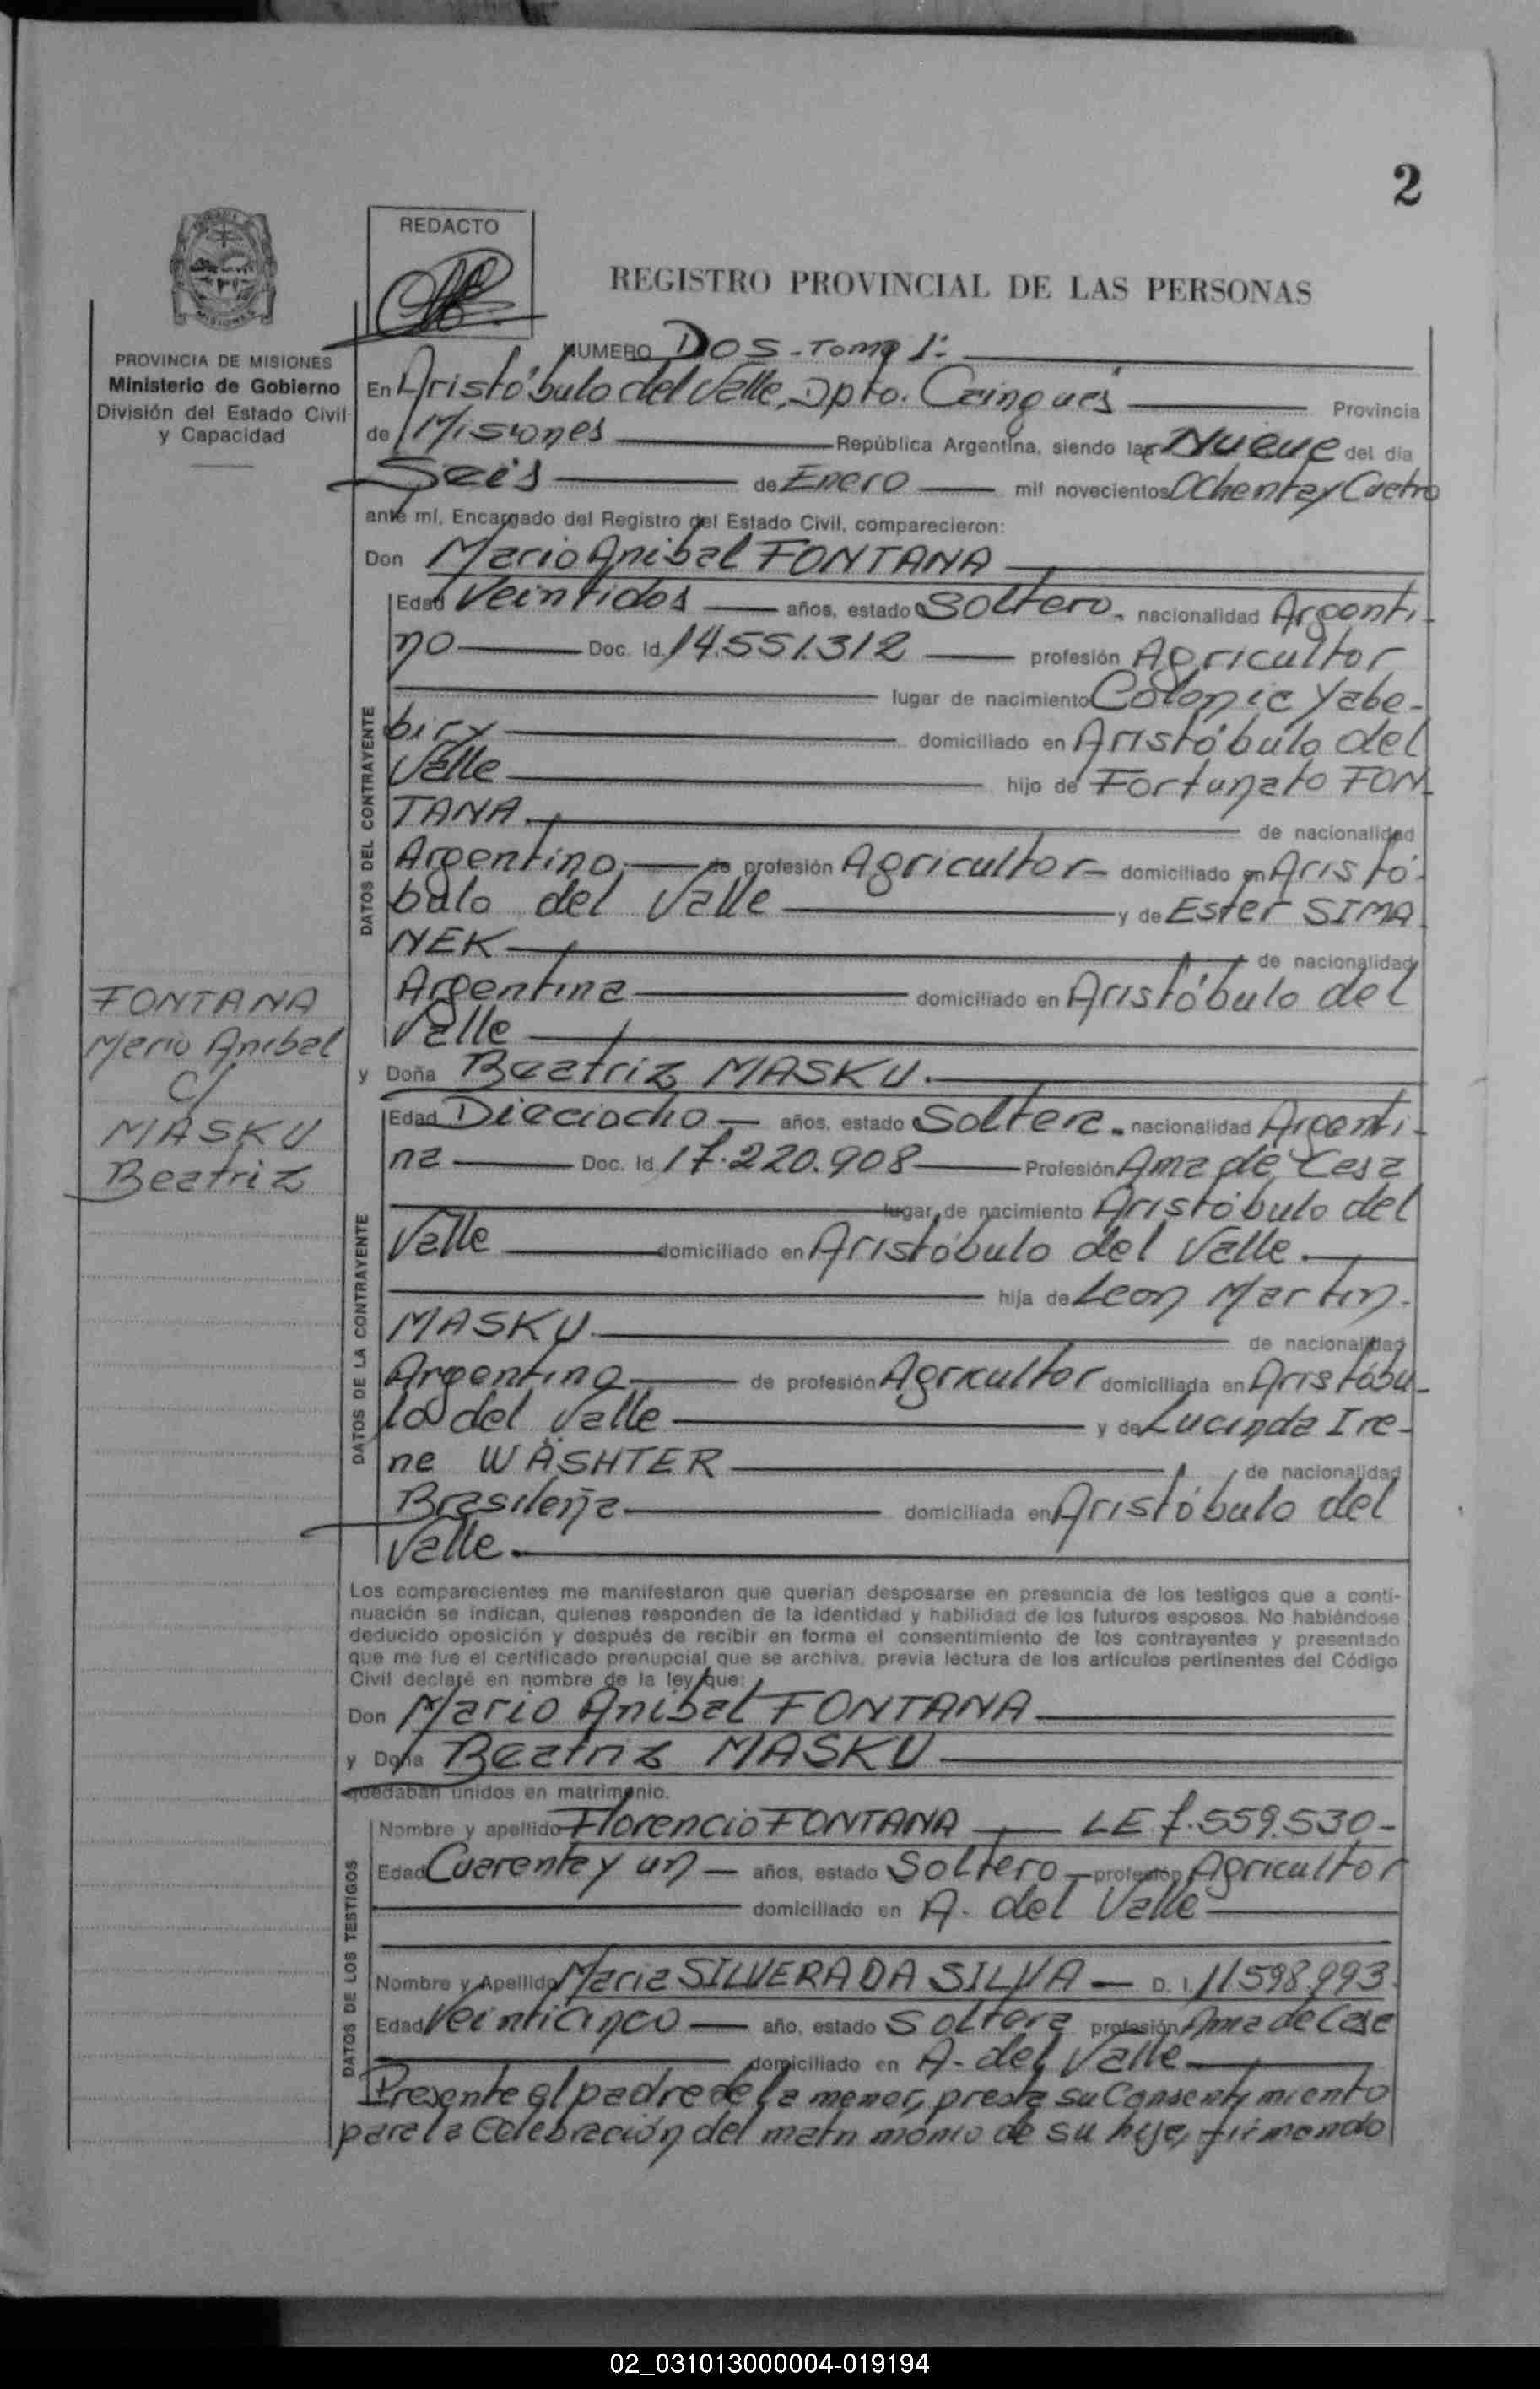 2
REDACTO
REGISTRO PROVINCIAL DE LAS PERSONAS
MISIONES
PROVINCIA DE MISIONES
Ministerio de Gobierno
División del Estado Civil
y Capacidad
NUMERO DOS - Tomo 1º
En Aristóbulo del Valle, Dpto. Cainguás Provincia
de Misiones República Argentina, siendo las Nueve del día
Seis de Enero mil novecientos Ochenta y Cuatro
ante mí, Encargado del Registro del Estado Civil, comparecieron:
Don Mario Anibal FONTANA
Edad Veintidos años, estado Soltero. nacionalidad Argenti-
no Doc. Id. 14.551.312 profesión Agricultor
lugar de nacimiento Colonia Yabe-
biry domiciliado en Aristóbulo del
Valle hijo de Fortunato FON-
TANA. de nacionalidad
Argentino. de profesión Agricultor domiciliado en Aristó-
bulo del Valle y de Ester SIMA
NEK de nacionalidad
Argentina domiciliado en Aristóbulo del
Valle
y Doña Beatriz MASKU.
Edad Dieciocho años, estado Soltera. nacionalidad Argenti-
na Doc. Id. 17.220.908 Profesión Ama de Casa
lugar de nacimiento Aristóbulo del
Valle domiciliado en Aristóbulo del Valle.
hija de Leon Martin
MASKU. de nacionalidad
Argentino de profesión Agricultor domiciliada en Aristóbu-
lo del Valle y de Lucinda Ire-
ne WÄSHTER de nacionalidad
Brasileña domiciliada en Aristóbulo del
Valle.
DATOS DEL CONTRAYENTE
DATOS DE LA CONTRAYENTE
FONTANA
Mario Anibal
C/
MASKU
Beatriz
Los comparecientes me manifestaron que querían desposarse en presencia de los testigos que a conti-
nuación se indican, quienes responden de la identidad y habilidad de los futuros esposos. No habiéndose
deducido oposición y después de recibir en forma el consentimiento de los contrayentes y presentado
que me fue el certificado prenupcial que se archiva, previa lectura de los artículos pertinentes del Código
Civil declaré en nombre de la ley que:
Don Mario Anibal FONTANA
y Doña Beatriz MASKU
quedaban unidos en matrimonio.
DATOS DE LOS TESTIGOS
Nombre y apellido Florencio FONTANA LE 7.559.530-
Edad Cuarenta y un años, estado Soltero profesión Agricultor
domiciliado en A. del Valle
Nombre y Apellido Maria SILVERA DA SILVA D. I. 11598.993
Edad Veinticinco año, estado Soltera profesión Ama de Casa
domiciliado en A. del Valle
Presente el padre de la menor, presta su Consentimiento
para la Celebración del matrimonio de su hija, firmando
02_031013000004-019194